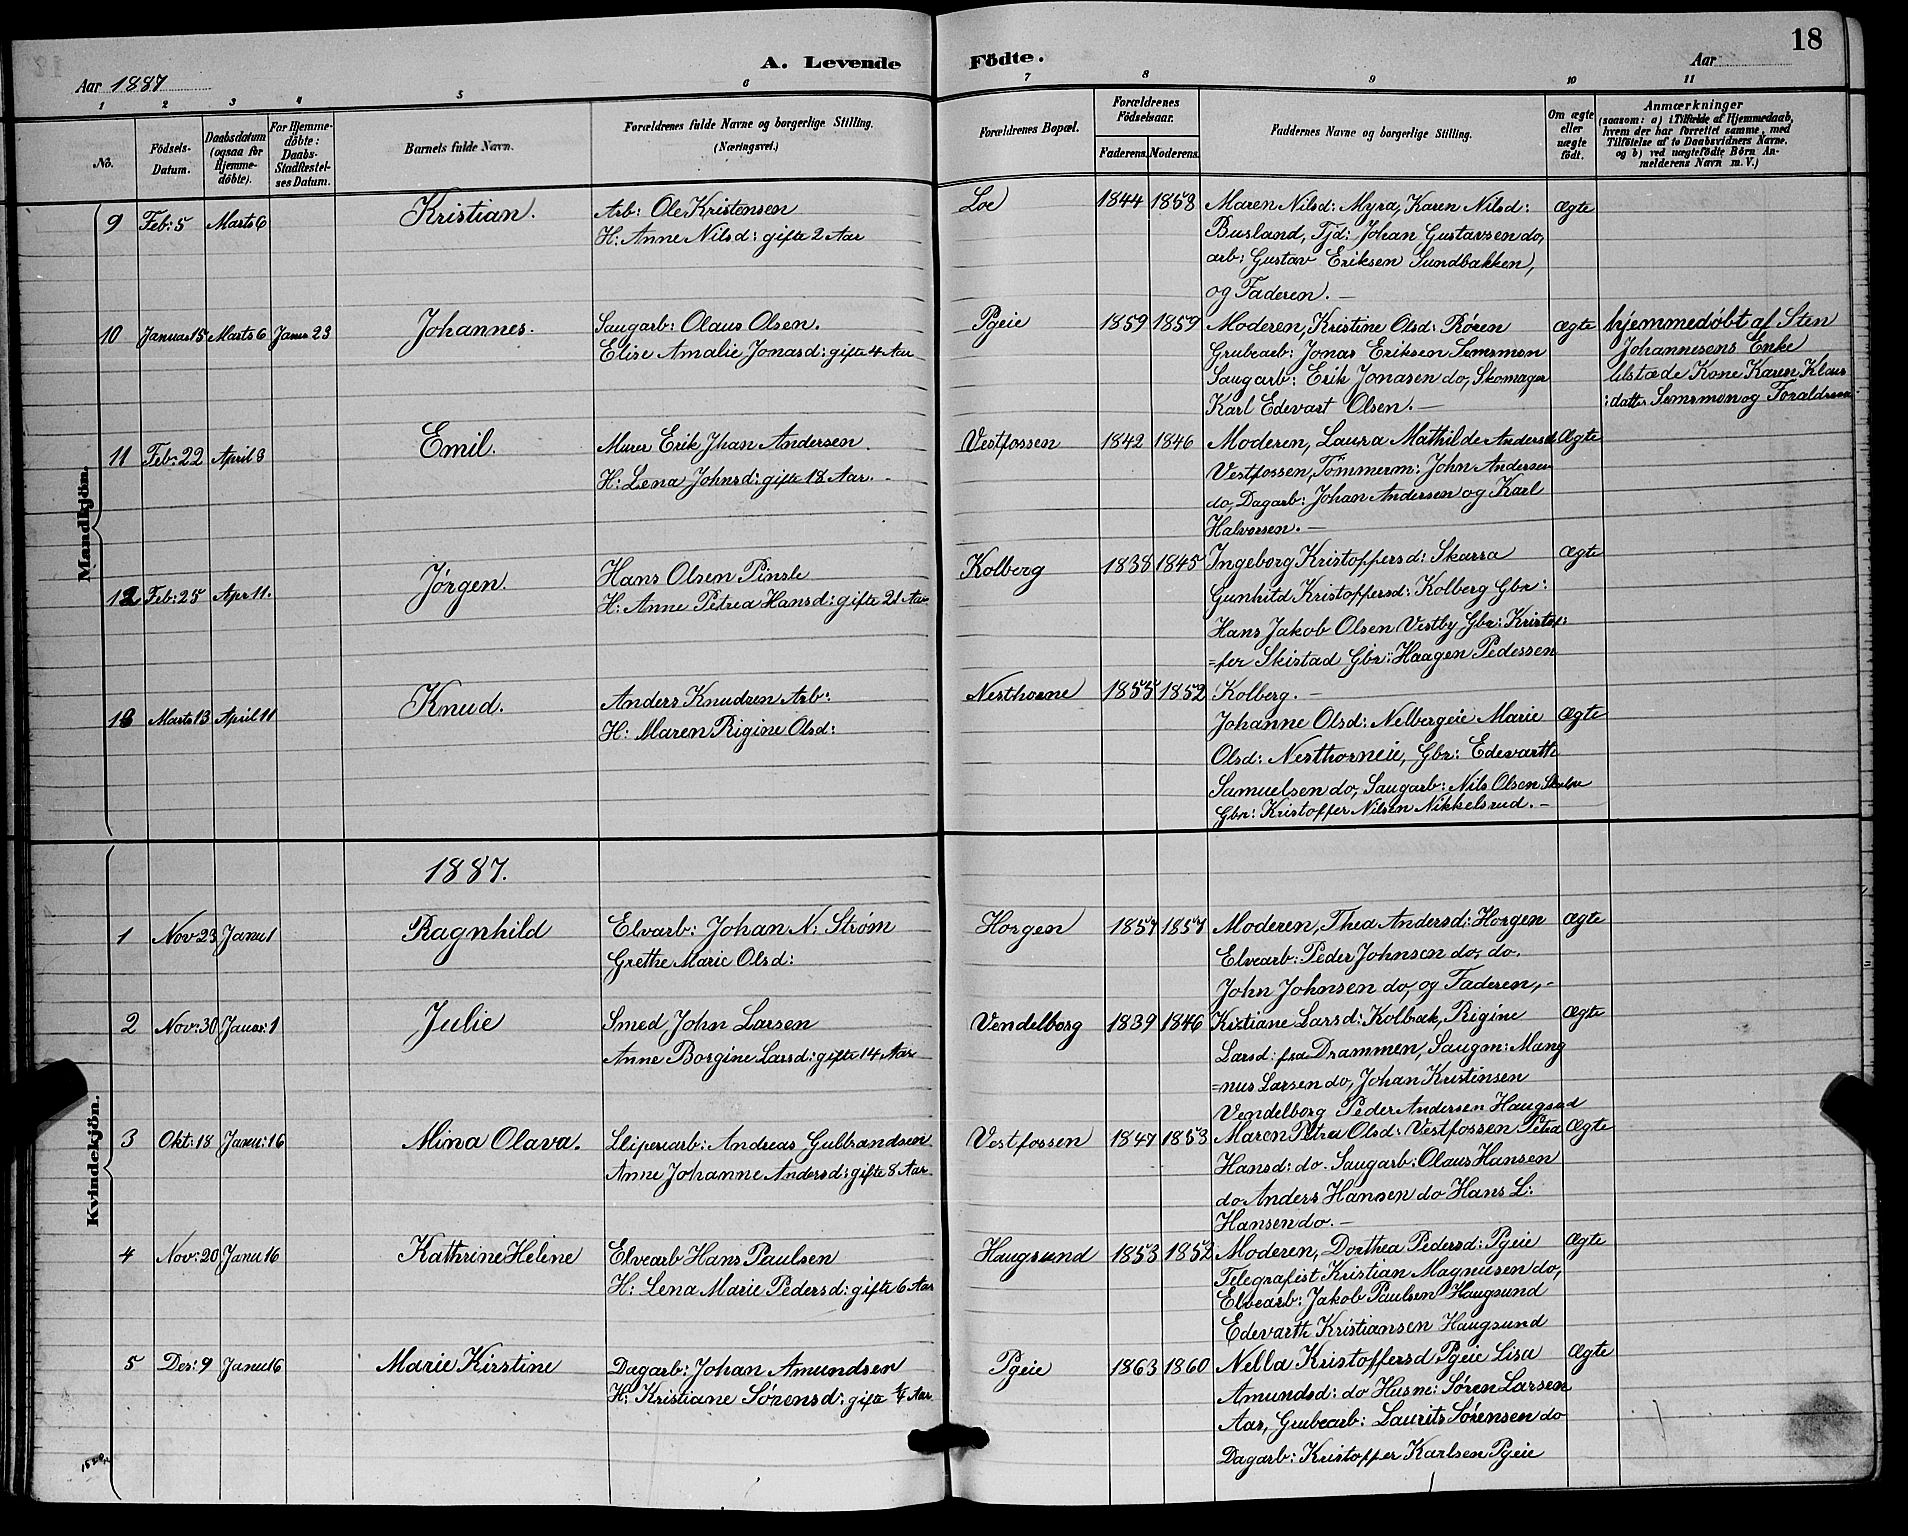 18
A. Levende Födte.
Aar 1887 Aar
1 2 3 4 5 6 7 8 9 10 11
No. Födsels-Datum. Daabsdatum (ogsaa for Hjemme-döbte). For Hjemme-döbte: Daabs-Stadfæstelses Datum. Barnets fulde Navn. Forældrenes fulde Navne og borgerlige Stilling. (Næringsvei.) Forældrenes Bopæl. Forældrenes Födselsaar. Faderens. Moderens. Faddernes Navne og borgerlige Stilling. Om ægte eller uægte födt. Anmærkninger (saasom: a) i Tilfælde af Hjemmedaab, hvem der har forrettet samme, med Tilföielse af to Daabsvidners Navne, og b) ved uægtefödte Börn Anmelderens Navn m. V.)
Mandkjön.
9 Feb: 5 Marts 6 Kristian. Arb: Ole Kristensen Loe 1844 1858 Maren Nilsd: Myra, Karen Nilsd: Ægte
H: Anne Nilsd: gifte 2 Aar Busland, Tjd: Johan Gustavsen do,
arb: Gustav Eriksen Sundbakken,
og Faderen. —
10 Januar 15 Marts 6 Janur 23 Johannes. Saugarb: Olaus Olsen. Pgeie 1859 1859 Moderen, Kristine Olsd: Røren Ægte hjemmedøbt af Sten
Elise Amalie Jonasd: gifte 4 Aar Grubearb: Jonas Eriksen Semsmoen Johannesens Enke
Saugarb: Erik Jonasen do, Skomager tilstæde Kone Karen Klaus
Karl Edevart Olsen. — :datter Semsmoen og Foraldrene
11 Feb: 22 April 3 Emil. Murer Erik Jhan Andersen Vestfossen 1842 1846 Moderen, Laura Mathilde Andersd Ægte
H: Lena Johnsd: gifte 18 Aar. Vestfossen, Tømmerm: John Andersen
do, Dagarb: Johan Andersen og Karl
Halvorsen. —
12 Feb: 25 Apr 11. Jørgen. Hans Olsen Pinsle Kolberg 1838 1845 Ingeborg Kristoffersd: Skarra Ægte
H: Anne Petrea Hansd: gifte 21 Aar Gunhild Kristoffersd: Kolberg Gbr:
Hans Jakob Olsen Vestby Gbr: Kristof:
=fer Skistad Gbr: Haagen Pedersen
Kolberg. —
13 Marts 13 April 11 Knud. Anders Knudsen Arb: Nesthorne 1855 1852 Johanne Olsd: Nelbergeie Marie Ægte
H: Maren Rigine Olsd: Olsd: Nesthorneie, Gbr: Edevarth
Samuelsen do, Saugarb: Nils Olsen
Gbr: Kristoffer Nilsen Nikkelsrud. —
1887.
Kvindekjön.
1 Nov 23 Janu 1 Ragnhild Elvarb: Johan N: Strøm Horgen 1857 1857 Moderen, Thea Andersd: Horgen Ægte
Grethe Marie Olsd: Elvearb: Peder Johnsen do, do.
John Johnsen do, og Faderen, -
2 Nov: 30 Januar: 1 Julie Smed John Larsen Vendelborg 1839 1846 Kristiane Larsd: Kolbræk, Rigine Ægte
Anne Borgine Larsd: gifte 14 Aar Larsd: fra Drammen, Saugm: Mang
=nus Larsen do, Johan Kristinsen
Vendelborg Peder Andersen Haugsund
3 Okt: 18 Janu: 16 Mina Olava. Sliperiarb: Andreas Gulbrandsen Vestfossen 1847 1853 Maren Petra Olsd: Vestfossen Petra Ægte
Anne Johanne Andersd: gifte 8 Aar Hansd: do. Saugarb: Olaus Hansen
do Anders Hansen do Hans L:
Hansen do. —
4 Nov: 20 Janu 16 Kathrine Heline Elvearb Hans Paulsen Haugsund 1853 1852 Moderen, Dorthea Pedersd: Pgeie Ægte
H: Lena Marie Pedersd: gifte 6 Aar Telegrafist Kristian Magnusen do,
Elvearb: Jakob Paulsen Haugsund
Edevarth Kristiansen Haugsund
5 Des: 9 Janu 16 Marie Kirstine Dagarb: Johan Amundsen Pgeie 1863 1860 Nella Kristoffersd Pgeie Lisa Ægte
H: Kristiane Sørensd: gifte ¼ Aar Amundsd: do Husm: Søren Larsen
Aas, Grubearb: Laurits Sørensen do
Dagarb: Kristoffer Karlsen Pgeie